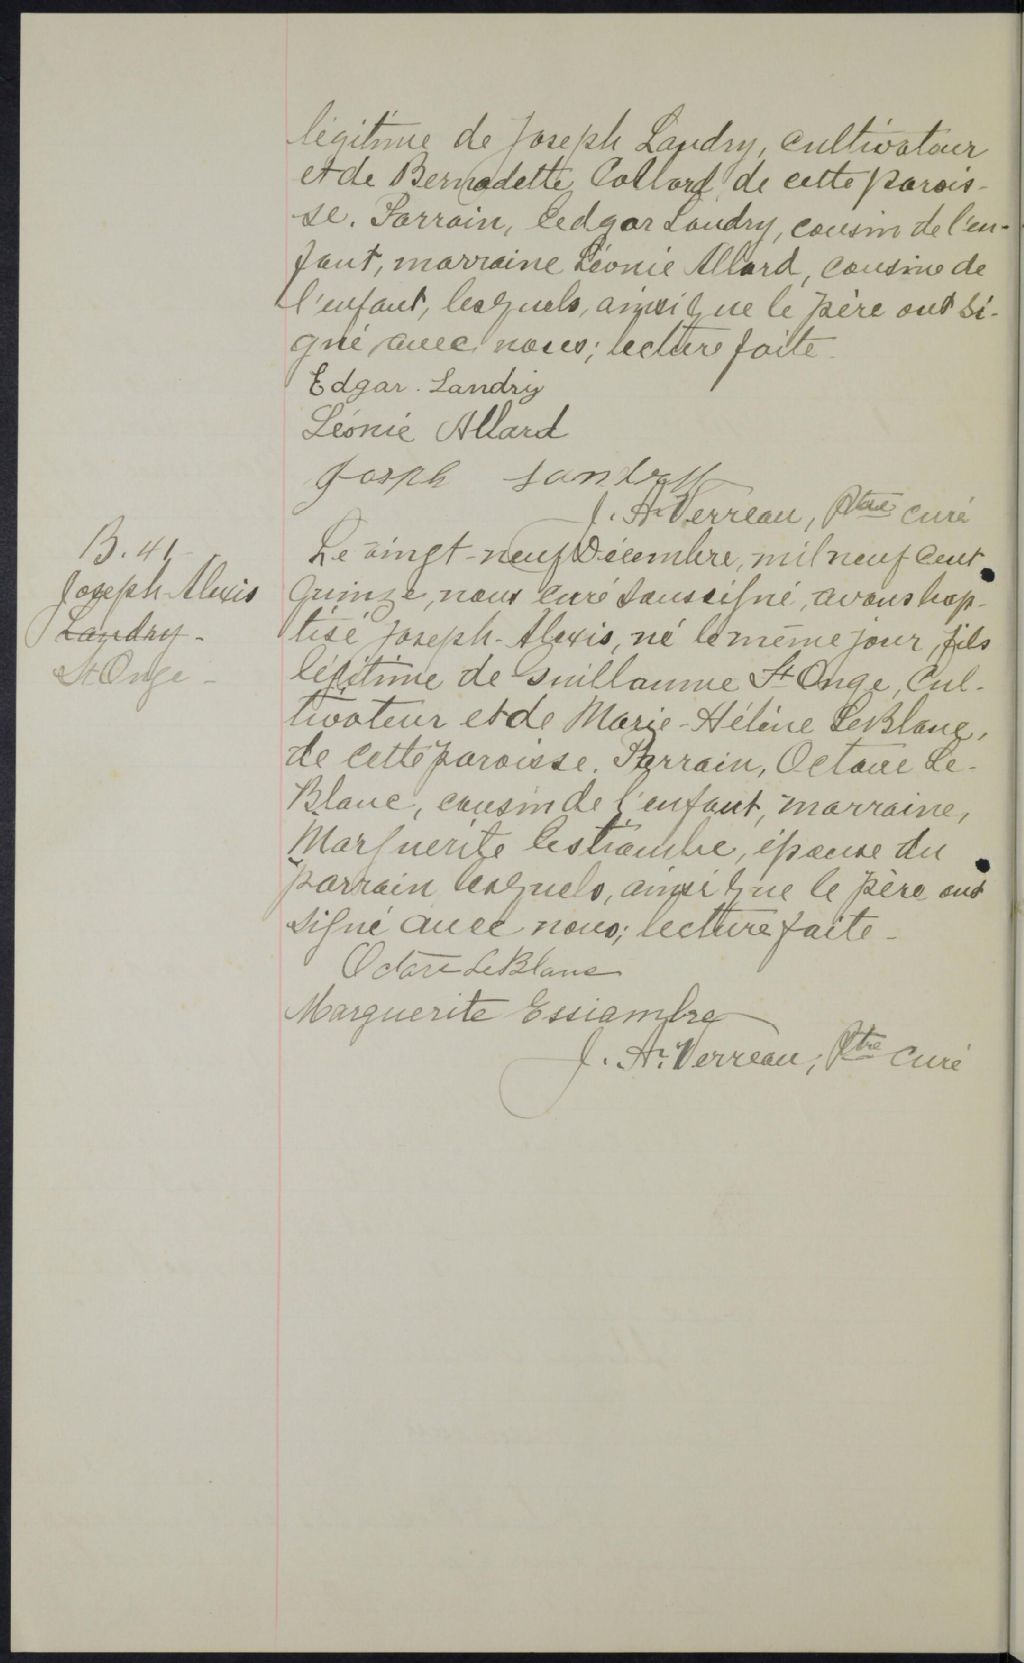 légitime de Joseph Landry, cultivateur
et de Bernadette Collard de cette parois-
se. Parrain, Cedgar Landry, cousin de l'en-
fant, marraine Léonie Allard, cousine de
l'enfant, lesquels, ainsi que le père ont si-
gné avec nous; lecture faite.
Edgar Landry
Léonie Allard
Joseph Landry
J. A. Verreau, Ptre curé
B. 41
Joseph-Alexis
Landry -
St Onge -
Le vingt-neuf Décembre, mil neuf cent
quinze, nous curé soussigné, avons bap-
tisé Joseph-Alexis, né le même jour, fils
légitime de Guillaume St Onge, cul-
tivateur et de Marie-Hélène LeBlanc,
de cette paroisse. Parrain, Octave Le-
Blanc, cousin de l'enfant, marraine,
Marguerite, épouse du
parrain lesquels, ainsi que le père ont
signé avec nous; lecture faite -
Octave LeBlanc
Marguerite Essiambre
J. A. Verreau, Ptre curé